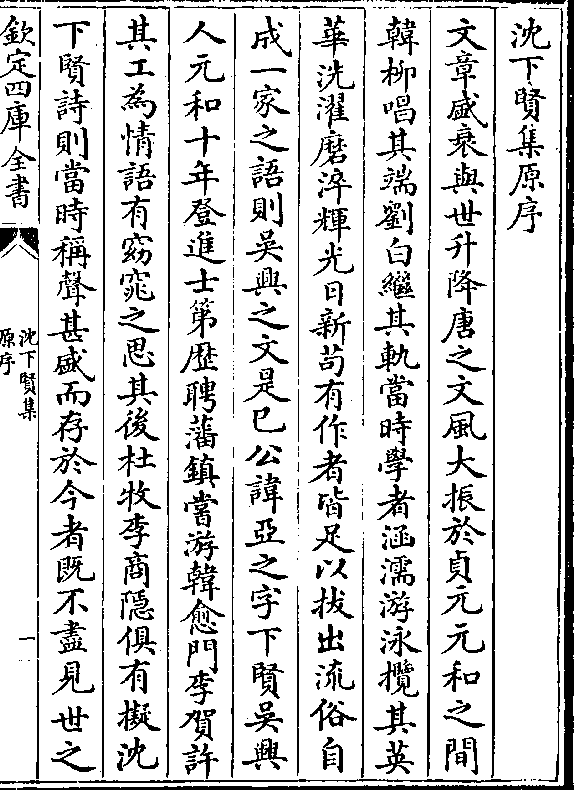 沈下賢集原序
文章盛衰與世升降唐之文風大振於貞元元和之間
韓柳唱其端劉白繼其軌當時學者涵濡游泳攬其英
華洗濯磨淬輝光日新茍有作者皆足以拔出流俗自
成一家之語則吳興之文是已公諱亞之字下賢吳興
人元和十年登進士第歴聘藩鎮嘗游韓愈門李賀許
其工為情語有窈窕之思其後杜牧李商隱俱有擬沈
下賢詩則當時稱聲甚盛而存於今者既不盡見世之
欽定四庫全書
沈下賢集
原序
一